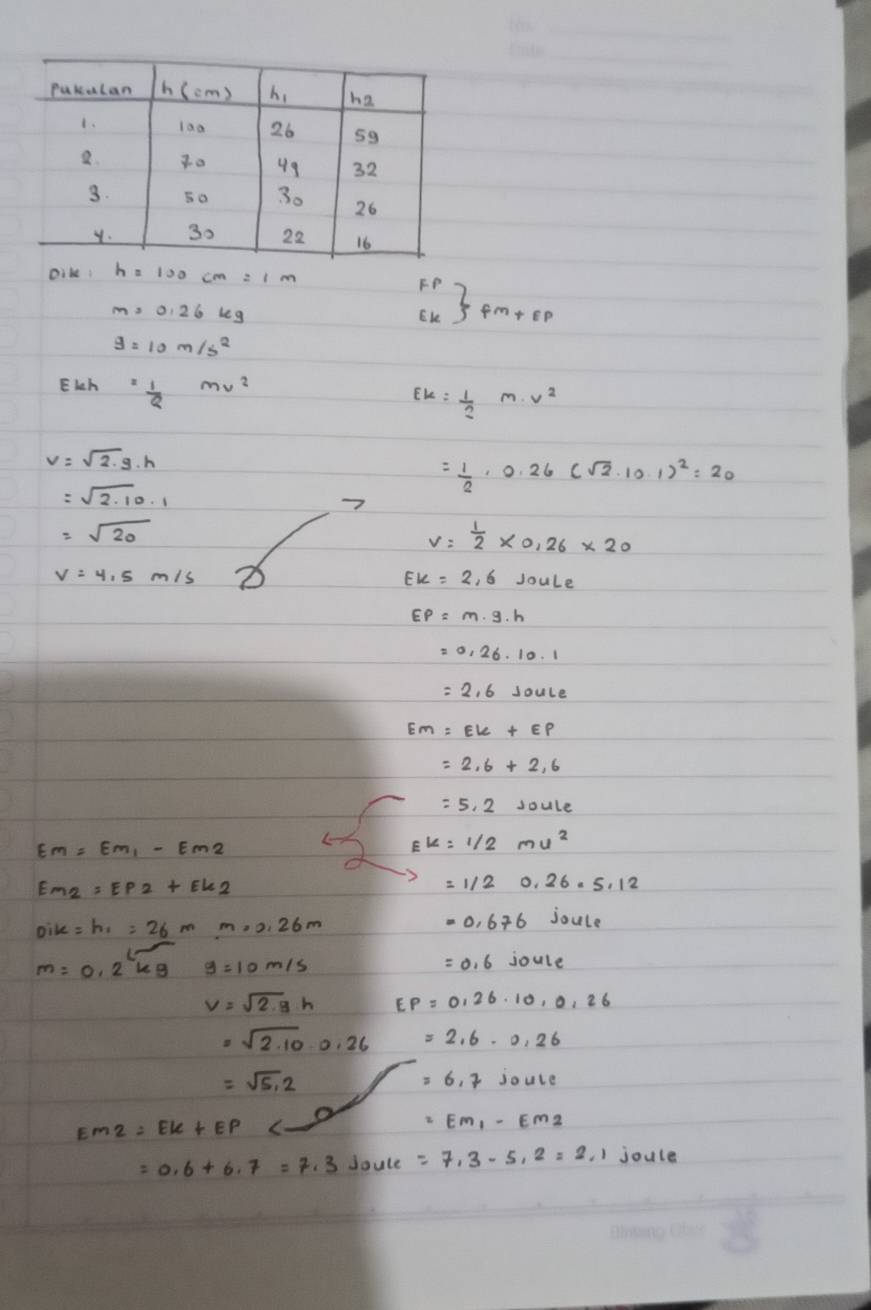 No.
Date
Pukulan h (cm) h₁ h2
1. 100 26 59
2. 70 49 32
3. 50 30 26
4. 30 22 16
Dik: h = 100 cm = 1 m
m = 0,26 kg
g = 10 m/s²
EP
Ek } Em + EP
Ekh = 1/2 mv²
v = √2.g.h
= √2.10.1
= √20
v = 4,5 m/s
Ek = 1/2 m.v²
= 1/2 . 0.26 (√2.10.1)² = 20
v = 1/2 × 0,26 × 20
Ek = 2,6 Joule
EP = m.g.h
= 0,26.10.1
= 2,6 Joule
Em = Ek + EP
= 2,6 + 2,6
= 5,2 Joule
Em = Em₁ - Em2
Em2 = EP2 + Ek2
Dik = h₁ = 26 m m = 0,26m
m = 0,2 kg g = 10 m/s
v = √2.g.h
= √2.10.0.26
= √5,2
Ek = 1/2 mv²
= 1/2 0,26 . 5,12
= 0,676 joule
= 0,6 joule
EP = 0,26.10,0,26
= 2,6 . 0,26
= 6,7 joule
= Em₁ - Em2
Em2 = Ek + EP
= 0,6 + 6,7 = 7,3 Joule = 7,3 - 5,2 = 2,1 joule